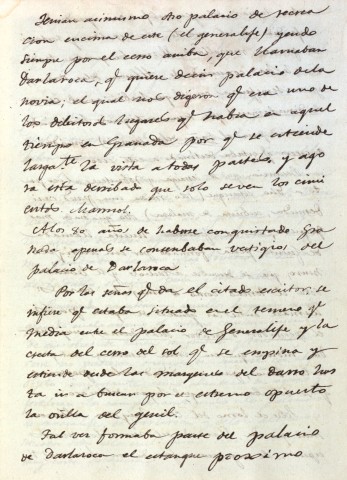 Tenian asimismo otro palacio de recrea
cion encima de este (el generalife) yendo
siempre por el cerro arriba, que llamaban
Darlaroca, qᵉ quiere decir palacio de la
novia; el qual nos digeron qᵉ era uno de
los deleitosos lugares qᵉ habia en aquel
tiempo en Granada por qᵉ se estiende
larga.ᵗᵉ la vista a todas partes, y ago
ra esta derribado que solo se ven los cimi
entos. Marmol.
A los 80 años de haberse conquistado Gra
nada apenas se conserbaban vestigios del
palacio de Darlaroca
Por las señas qᵉ da el citado escritor, se
infiere qᵉ estaba situado en el terreno qᵉ
media entre el palacio de Generalife y la
cresta del cerro del sol qᵉ se empina y
estiende desde las margenes del darro has
ta ir a buscar por el estremo opuesto
la orilla del genil.
Tal vez formaba parte del palacio
de Darlaroca el estanque proximo